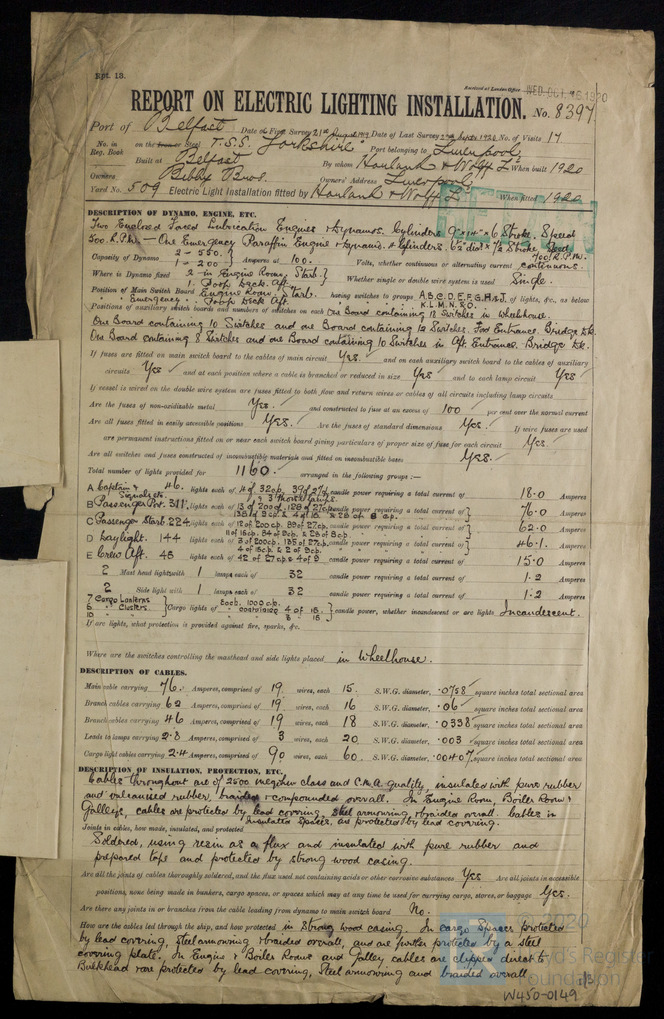 Rpt. 13.
Received at London Office WED. OCT. 6 1920
REPORT ON ELECTRIC LIGHTING INSTALLATION. No. 8397
Port of Belfast Date of First Survey 21st August 1919 Date of Last Survey Septr 1920 No. of Visits 17
No. in Reg. Book on the Iron or Steel T.S.S. Yorkshire Port belonging to Liverpool
Built at Belfast By whom Harland & Wolff Ld When built 1920
Owners Bibby Bros. Owners' Address Liverpool
Yard No. 509 Electric Light Installation fitted by Harland & Wolff Ld When fitted 1920
DESCRIPTION OF DYNAMO, ENGINE, ETC.
Two Enclosed Forced Lubrication Engines & Dynamos. Cylinders 9" x 14" x 6 Stroke. Speed
500 R.P.M. — One Emergency Paraffin Engine & Dynamo. Cylinders 6½" dia x 7½ Stroke Speed
400 R.P.M.
Capacity of Dynamo 2 - 550. 1 - 200. Amperes at 100. Volts, whether continuous or alternating current continuous.
Where is Dynamo fixed 2 in Engine Room, Starb. 1. Poop Deck Aft. Whether single or double wire system is used Single.
Position of Main Switch Board Engine Room, Starb. having switches to groups A, B, C, D, E, F, G, H & J, of lights, &c., as below
" Emergency " Poop Deck Aft. " K. L. M. N. & O.
Positions of auxiliary switch boards and numbers of switches on each One Board containing 18 Switches in Wheelhouse.
One Board containing 10 Switches and one Board containing 12 Switches. For. Entrance. Bridge Dk.
One Board containing 8 Switches and one Board containing 10 Switches in Aft. Entrance. Bridge Dk.
If fuses are fitted on main switch board to the cables of main circuit Yes. and on each auxiliary switch board to the cables of auxiliary
circuits Yes and at each position where a cable is branched or reduced in size Yes and to each lamp circuit Yes
If vessel is wired on the double wire system are fuses fitted to both flow and return wires or cables of all circuits including lamp circuits
Are the fuses of non-oxidizable metal Yes. and constructed to fuse at an excess of 100 per cent over the normal current
Are all fuses fitted in easily accessible positions Yes. Are the fuses of standard dimensions Yes. If wire fuses are used
are permanent instructions fitted on or near each switch board giving particulars of proper size of fuse for each circuit Yes.
Are all switches and fuses constructed of incombustible materials and fitted on incombustible bases Yes.
Total number of lights provided for 1160. arranged in the following groups :—
A Captain & Signals etc. 46. lights each of 4 of 32 cp. 39 of 27 & 3 Morse lamps. candle power requiring a total current of 18.0 Amperes
B Passenger Port. 311. lights each of 13 of 200 cp. 128 of 27 cp. 138 of 9 cp. & 4 of 16 & 28 of 8 cp. candle power requiring a total current of 76.0 Amperes
C Passenger Starb. 224 lights each of 12 of 200 cp. 89 of 27 cp. 11 of 16 cp. 84 of 9 cp. & 28 of 8 cp. candle power requiring a total current of 62.0 Amperes
D Daylight. 144 lights each of 3 of 200 cp. 135 of 27 cp. 4 of 16 cp. & 2 of 9 cp. candle power requiring a total current of 46.1 Amperes
E Crew Aft. 46 lights each of 42 of 27 cp. & 4 of 9 candle power requiring a total current of 15.0 Amperes
2 Mast head lights with 1 lamps each of 32 candle power requiring a total current of 1.2 Amperes
2 Side light with 1 lamps each of 32 candle power requiring a total current of 1.2 Amperes
7 Cargo Lanterns Each 1000 cp.
6 " Clusters. Cargo lights of containing 4 of 16. candle power, whether incandescent or arc lights Incandescent.
10 " " 8 " 16
If arc lights, what protection is provided against fire, sparks, &c.
Where are the switches controlling the masthead and side lights placed in Wheelhouse.
DESCRIPTION OF CABLES.
Main cable carrying 76. Amperes, comprised of 19 wires, each 15 S.W.G. diameter, .0758 square inches total sectional area
Branch cables carrying 62 Amperes, comprised of 19 wires, each 16 S.W.G. diameter, .06 square inches total sectional area
Branch cables carrying 46 Amperes, comprised of 19 wires, each 18 S.W.G. diameter, .0338 square inches total sectional area
Leads to lamps carrying 2.8 Amperes, comprised of 3 wires, each 20 S.W.G. diameter, .003 square inches total sectional area
Cargo light cables carrying 2.4 Amperes, comprised of 90 wires, each 60 S.W.G. diameter, .00407 square inches total sectional area
DESCRIPTION OF INSULATION, PROTECTION, ETC.
Cables throughout are of 2500 megohm class and C.M.A. quality, insulated with pure rubber
and vulcanised rubber, braided & compounded overall. In Engine Room, Boiler Room &
Galleys, cables are protected by lead covering, steel armouring & braided overall. Cables in
insulated spaces, are protected by lead covering.
Joints in cables, how made, insulated, and protected
Soldered, using resin as a flux and insulated with pure rubber and
prepared tape and protected by strong wood casing.
Are all the joints of cables thoroughly soldered, and the flux used not containing acids or other corrosive substances Yes Are all joints in accessible
positions, none being made in bunkers, cargo spaces, or spaces which may at any time be used for carrying cargo, stores, or baggage Yes.
Are there any joints in or branches from the cable leading from dynamo to main switch board No.
How are the cables led through the ship, and how protected in strong wood casing. In cargo Spaces protected
by lead covering, steel armouring & braided overall, and are further protected by a steel
covering plate. In Engine & Boiler Rooms and Galley cables are clipped direct to
Bulkhead & are protected by lead covering, Steel armouring and braided overall.
© 2020
Lloyd's Register
Foundation
W450-0149